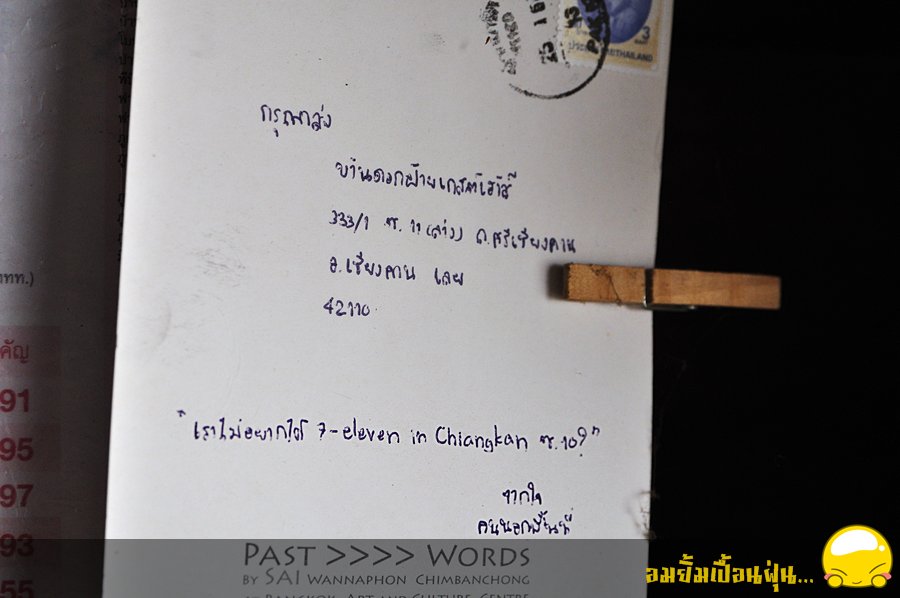 3
ประเทศไทย THAILAND
กรุณาส่ง
บ้านดอกฝ้ายเกสต์เฮ้าส์
333/1 ซ. 11 (ล่าง) ถ.ศรีเชียงคาน
อ.เชียงคาน เลย
42110
"เราไม่อยากได้ 7-eleven in Chiangkan ซ.10?"
จากใจ
คนนอกพื้นที่
ททท.)
คัญ
91
95
97
93
55
PAST >>>> WORDS
BY SAI WANNAPHON CHIMBANCHONG
AT BANGKOK ART AND CULTURE CENTRE
อมยิ้มเปื้อนฝุ่น...